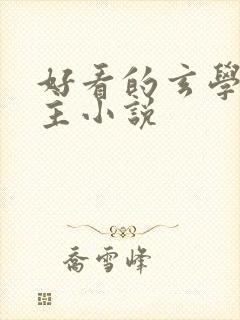 好看的玄學
主小說
喬雪峰